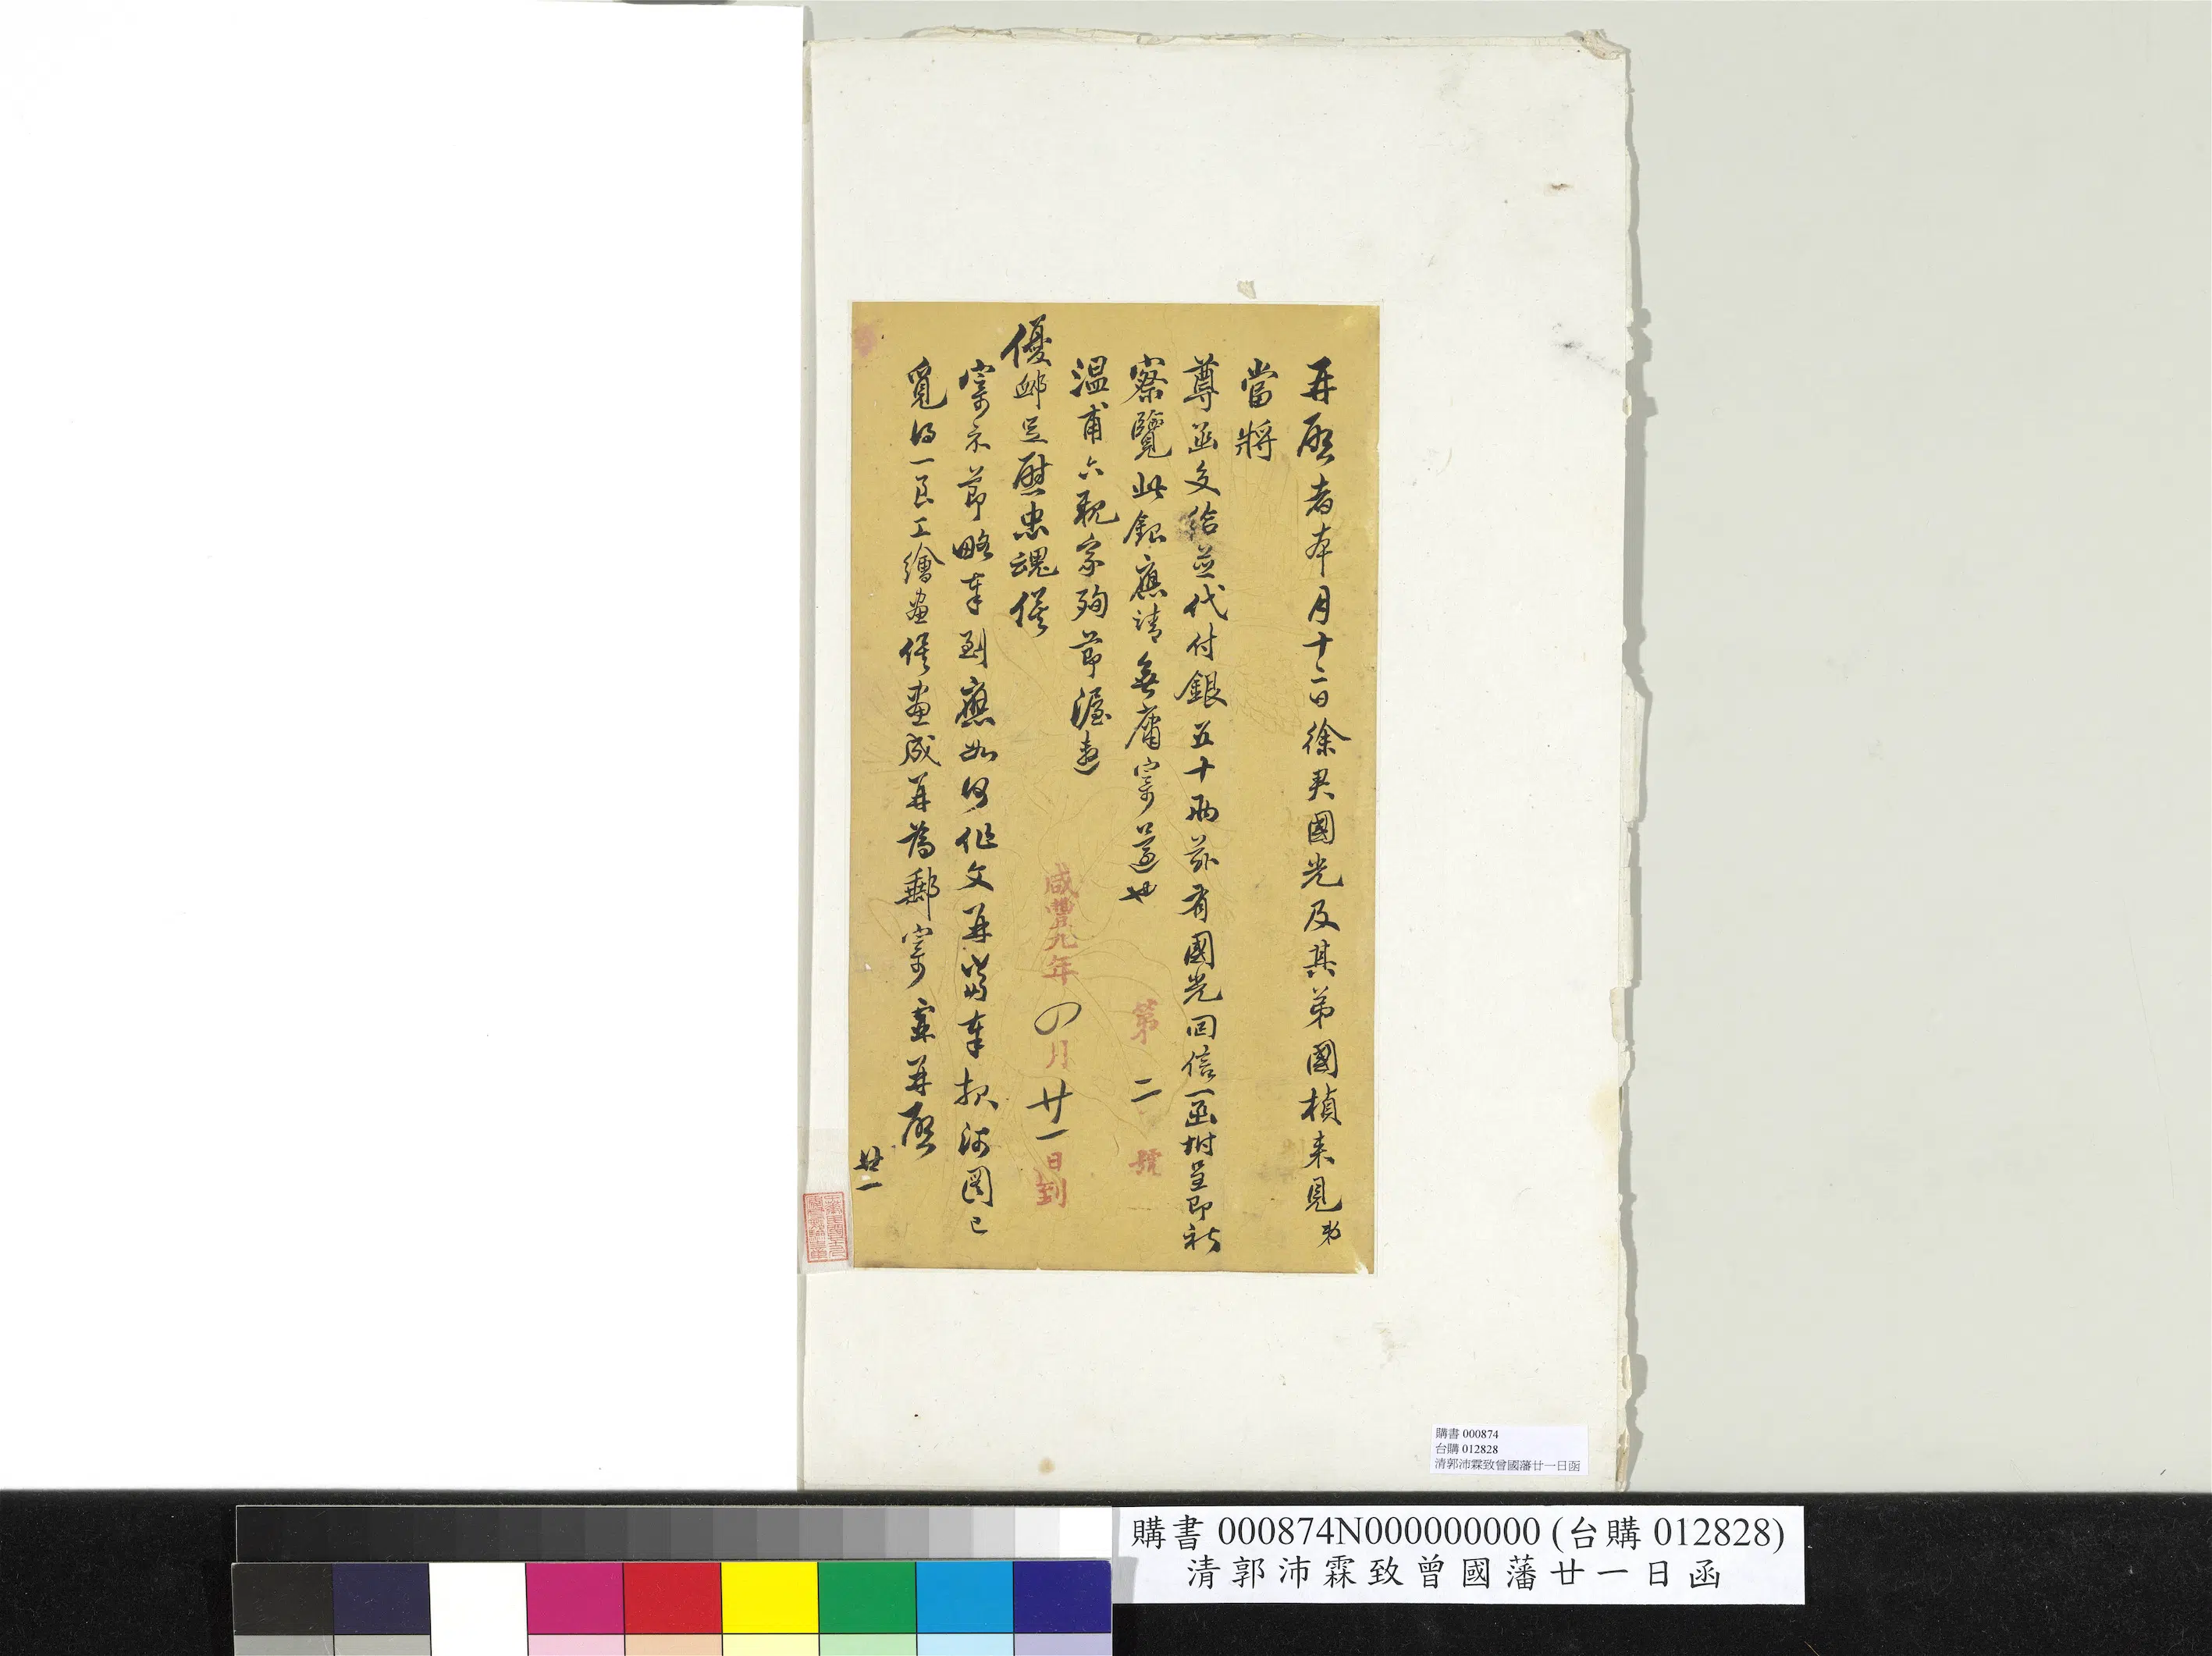 再啟者本月十二日徐君國光及其弟國楨來見弟
當將
尊函交給並代付銀五十兩茲有國光回信一函附呈即祈
察覽此銀應請無庸寄還也
溫甫六親家殉節渥邀
優卹足慰忠魂俟
寄示節略奉到應如何作文再當奉報涉園已
覓得一良工繪畫俟畫成再為郵寄耑再啟
廿一
第二號
咸豐九年四月廿一日到
購書 000874
台購 012828
清郭沛霖致曾國藩廿一日函
購書 000874N000000000 (台購 012828)
清郭沛霖致曾國藩廿一日函